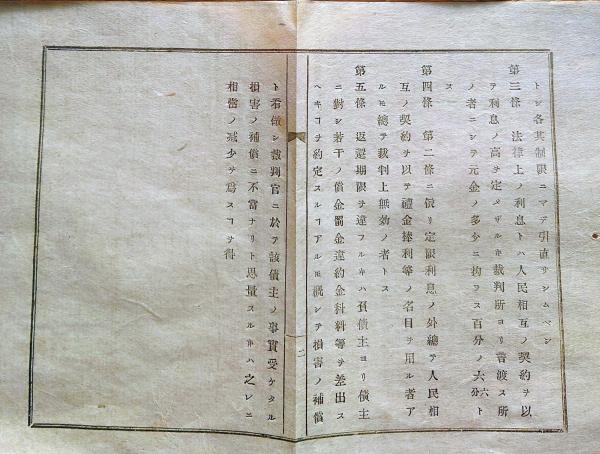 トシ各其制限ニマテ引直サシムベシ
第三條 法律上ノ利息トハ人民相互ノ契約ヲ以
テ利息ノ高ヲ定メサルキ裁判所ヨリ言渡ス所
ノ者ニシテ元金ノ多少ニ拘ラス百分ノ六六分ト
ス
第四條 第二條ニ依リ定限利息ノ外總テ人民相
互ノ契約ヲ以テ禮金棒利等ノ名目ヲ用ル者ア
ルモ總テ裁判上無效ノ者トス
第五條 返還期限ヲ違フルキハ負債主ヨリ債主
ニ對シ若干ノ償金罰金違約金科料等ヲ差出ス
ヘキヿヲ約定スルヿアルモ概シテ損害ノ補償
二
ト看做シ裁判官ニ於テ該債主ノ事實受ケタル
損害ノ補償ニ不當ナリト思量スルキハ之レニ
相當ノ減少ヲ爲スヿヲ得